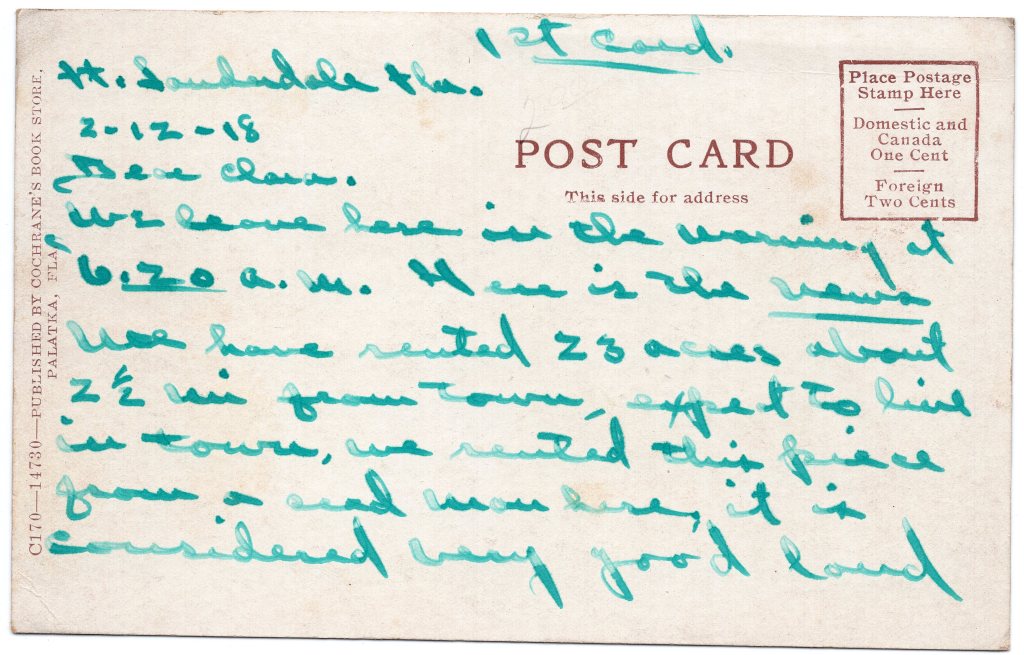 1st Card.
Ft. Lauderdale Fla.
2-12-18
Dear Clara.
We leave here in the morning at
6.20 a.m. Here is the news
We have rented 23 acres about
2½ mi from town, expect to live
in town, we rented this piece
from a man here, it is
considered very good land
POST CARD
This side for address
Place Postage
Stamp Here
Domestic and
Canada
One Cent
Foreign
Two Cents
C170—14730—PUBLISHED BY COCHRANE'S BOOK STORE,
PALATKA, FLA.